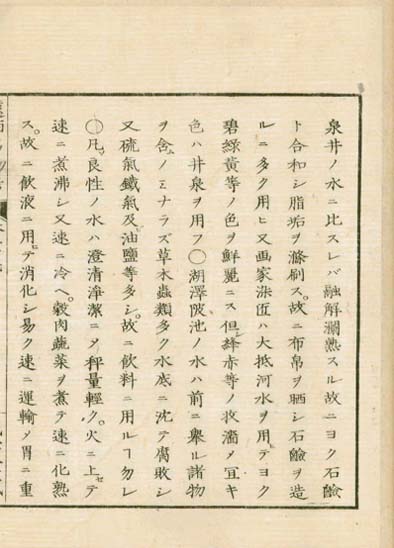 泉井ノ水ニ比スレバ融解瀾熟スル故ニヨク石鹸
ト合和シ脂垢ヲ滌刷ス。故ニ布帛ヲ晒シ石鹸ヲ造
ルニ多ク用ヒ又画家染匠ハ大抵河水ヲ用テヨク
碧緑黄等ノ色ヲ鮮麗ニス但シ絳赤等ノ收濇メ宜キ
色ハ井泉ヲ用フ〇湖澤陂池ノ水ハ前ニ舉ル諸物
ヲ含ムノミナラズ草木蟲類多ク水底ニ沈テ腐敗シ
又硫氣鐵氣及ビ油鹽等多シ。故ニ飲料ニ用ルヿ勿レ
〇凡良性ノ水ハ澄清淨潔ニメ秤量輕ク。火ニ上セテ
速ニ煮沸シ又速ニ冷ヘ。穀肉蔬菜ヲ煮テ速ニ化熟
ス。故ニ飲液ニ用テ消化シ易ク速ニ運輸メ胃ニ重